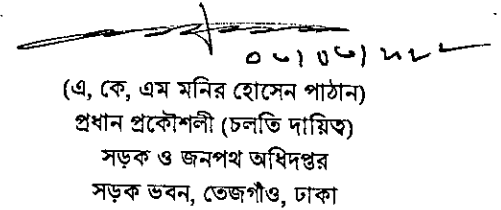 (এ, কে, এম মনির হোসেন পাঠান)
প্রধান প্রকৌশলী (চলতি দায়িত্ব)
সড়ক ও জনপথ অধিদপ্তর
সড়ক ভবন, তেজগাঁও, ঢাকা